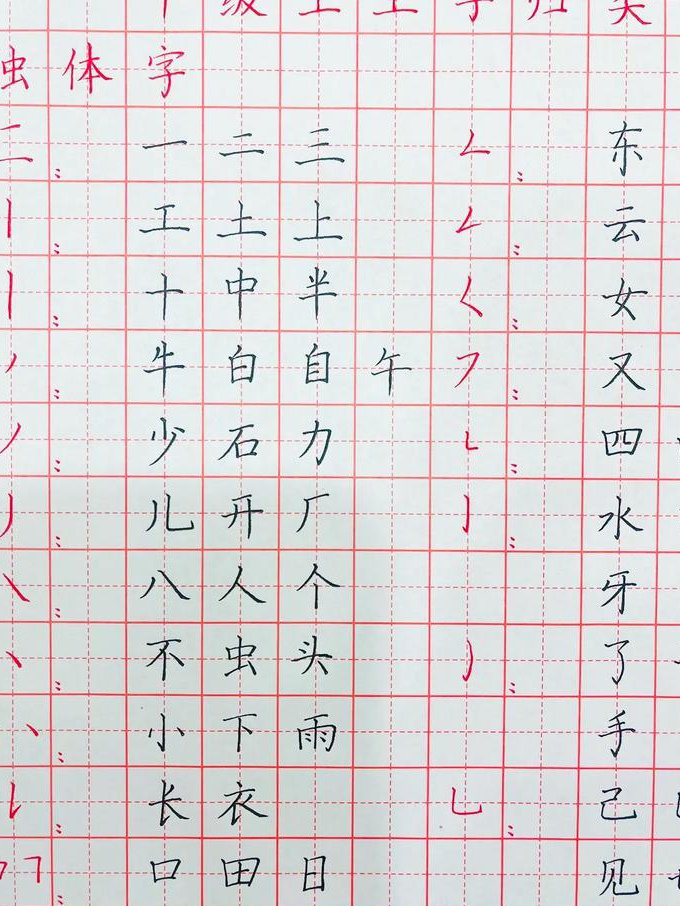 级上字归类
虫体字
二：一二三 𠃋：东
丨：工土上 𠃋：云
丨：十中半 ㄑ：女
丿：牛白自午 ㇇：又
丿：少石力 ㇄：四
丿：儿开厂 亅：水
㇏：八人个 牙
丶：不虫头 ）：了
丶：小下雨 手
㇙：长衣 乚：己
𠃍：口田日 见